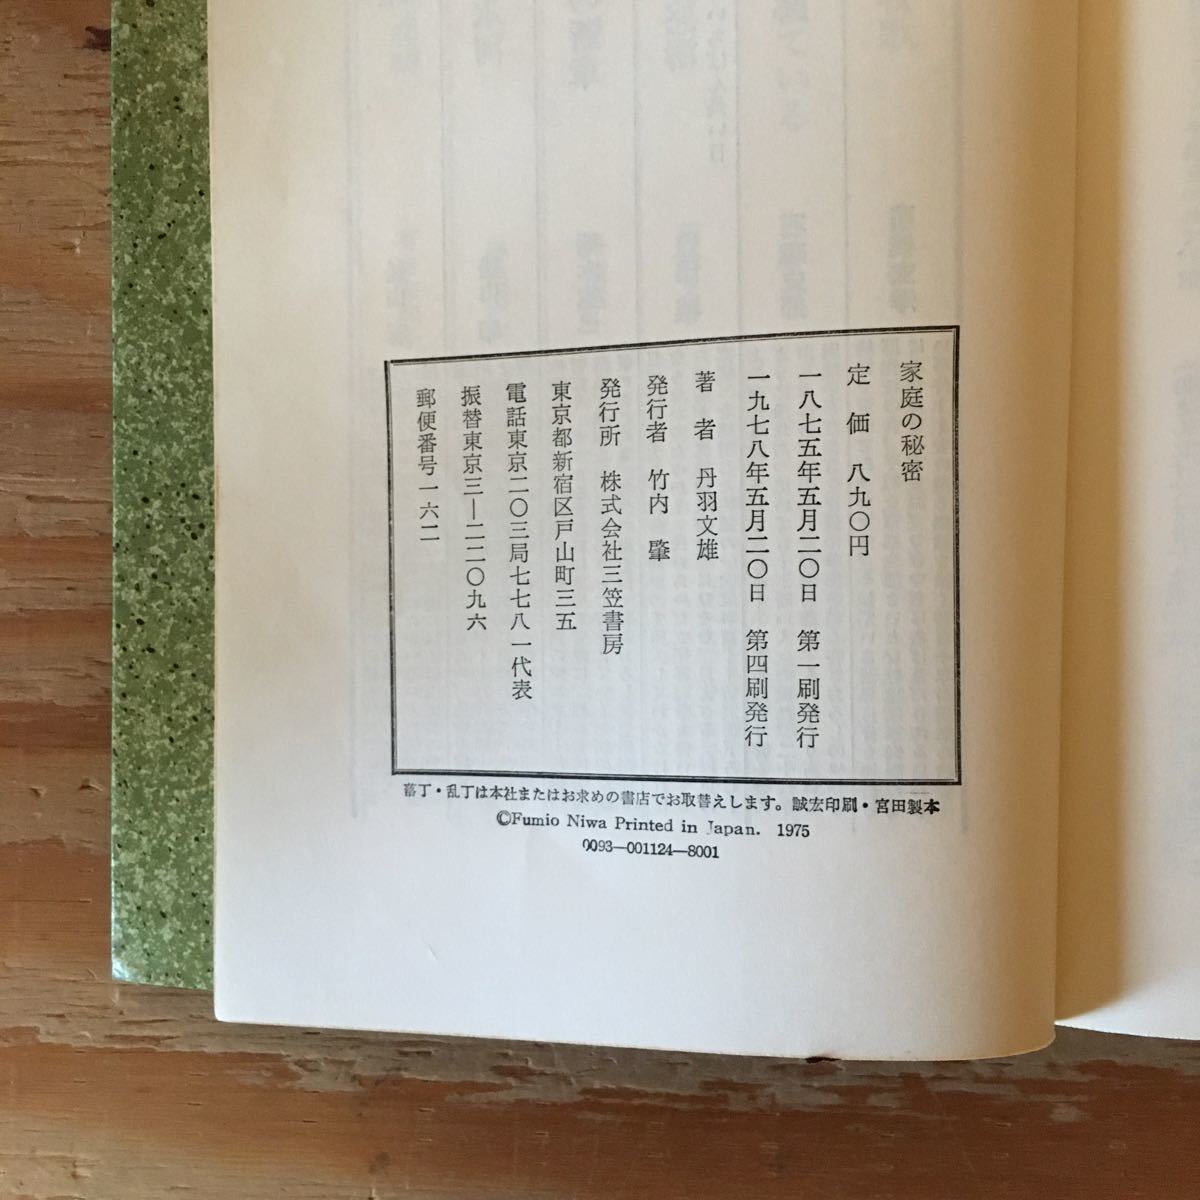 家庭の秘密
定価 八九〇円
一八七五年五月二〇日 第一刷発行
一九七八年五月二〇日 第四刷発行
著者 丹羽文雄
発行者 竹内肇
発行所 株式会社三笠書房
東京都新宿区戸山町三五
電話東京二〇三局七七八一代表
振替東京三―二二〇九六
郵便番号一六二
落丁・乱丁は本社またはお求めの書店でお取替えします。誠宏印刷・宮田製本
©Fumio Niwa Printed in Japan. 1975
0093―001124―8001